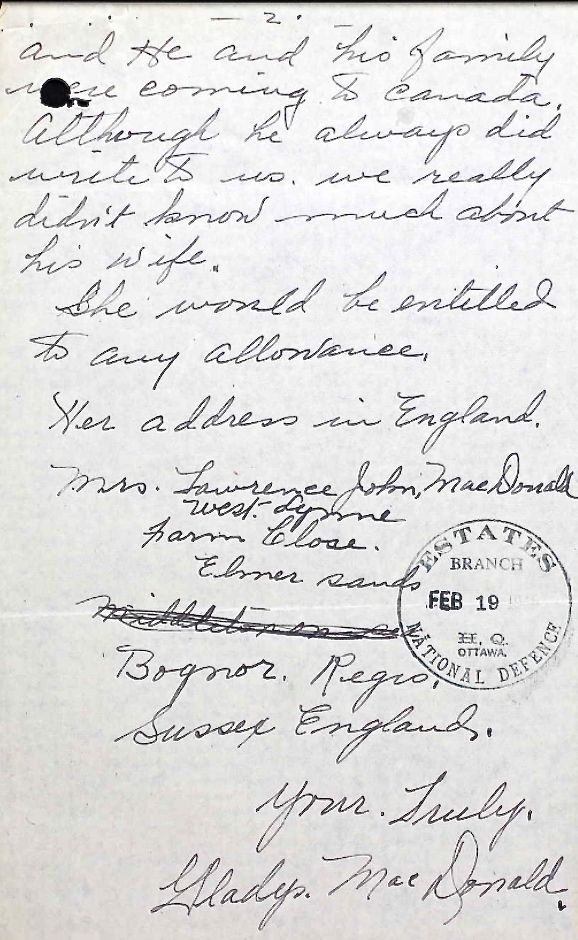 - 2. -
and He and his family
were coming to canada.
Although he always did
write to us. we really
didn't know much about
his wife.
She would be entitled
to any allowance.
Her address in England.
Mrs. Lawrence John, MacDonald
West Lynne
Farm Close.
Elmer sands
Bognor. Regis.
Sussex England.
Your. Truly.
Gladys. MacDonald.
ESTATES
BRANCH
FEB 19
H. Q.
OTTAWA.
NATIONAL DEFENCE